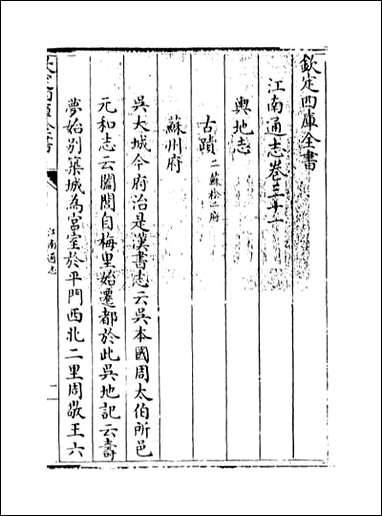 欽定四庫全書
江南通志卷三十一
輿地志
古蹟二蘇松二府
蘇州府
吳大城今府治是漢書志云吳本國周太伯所邑
元和志云闔閭自梅里始遷都於此吳地記云壽
夢始別築城為宮室於平門西北二里周敬王六
欽定四庫全書
江南通志